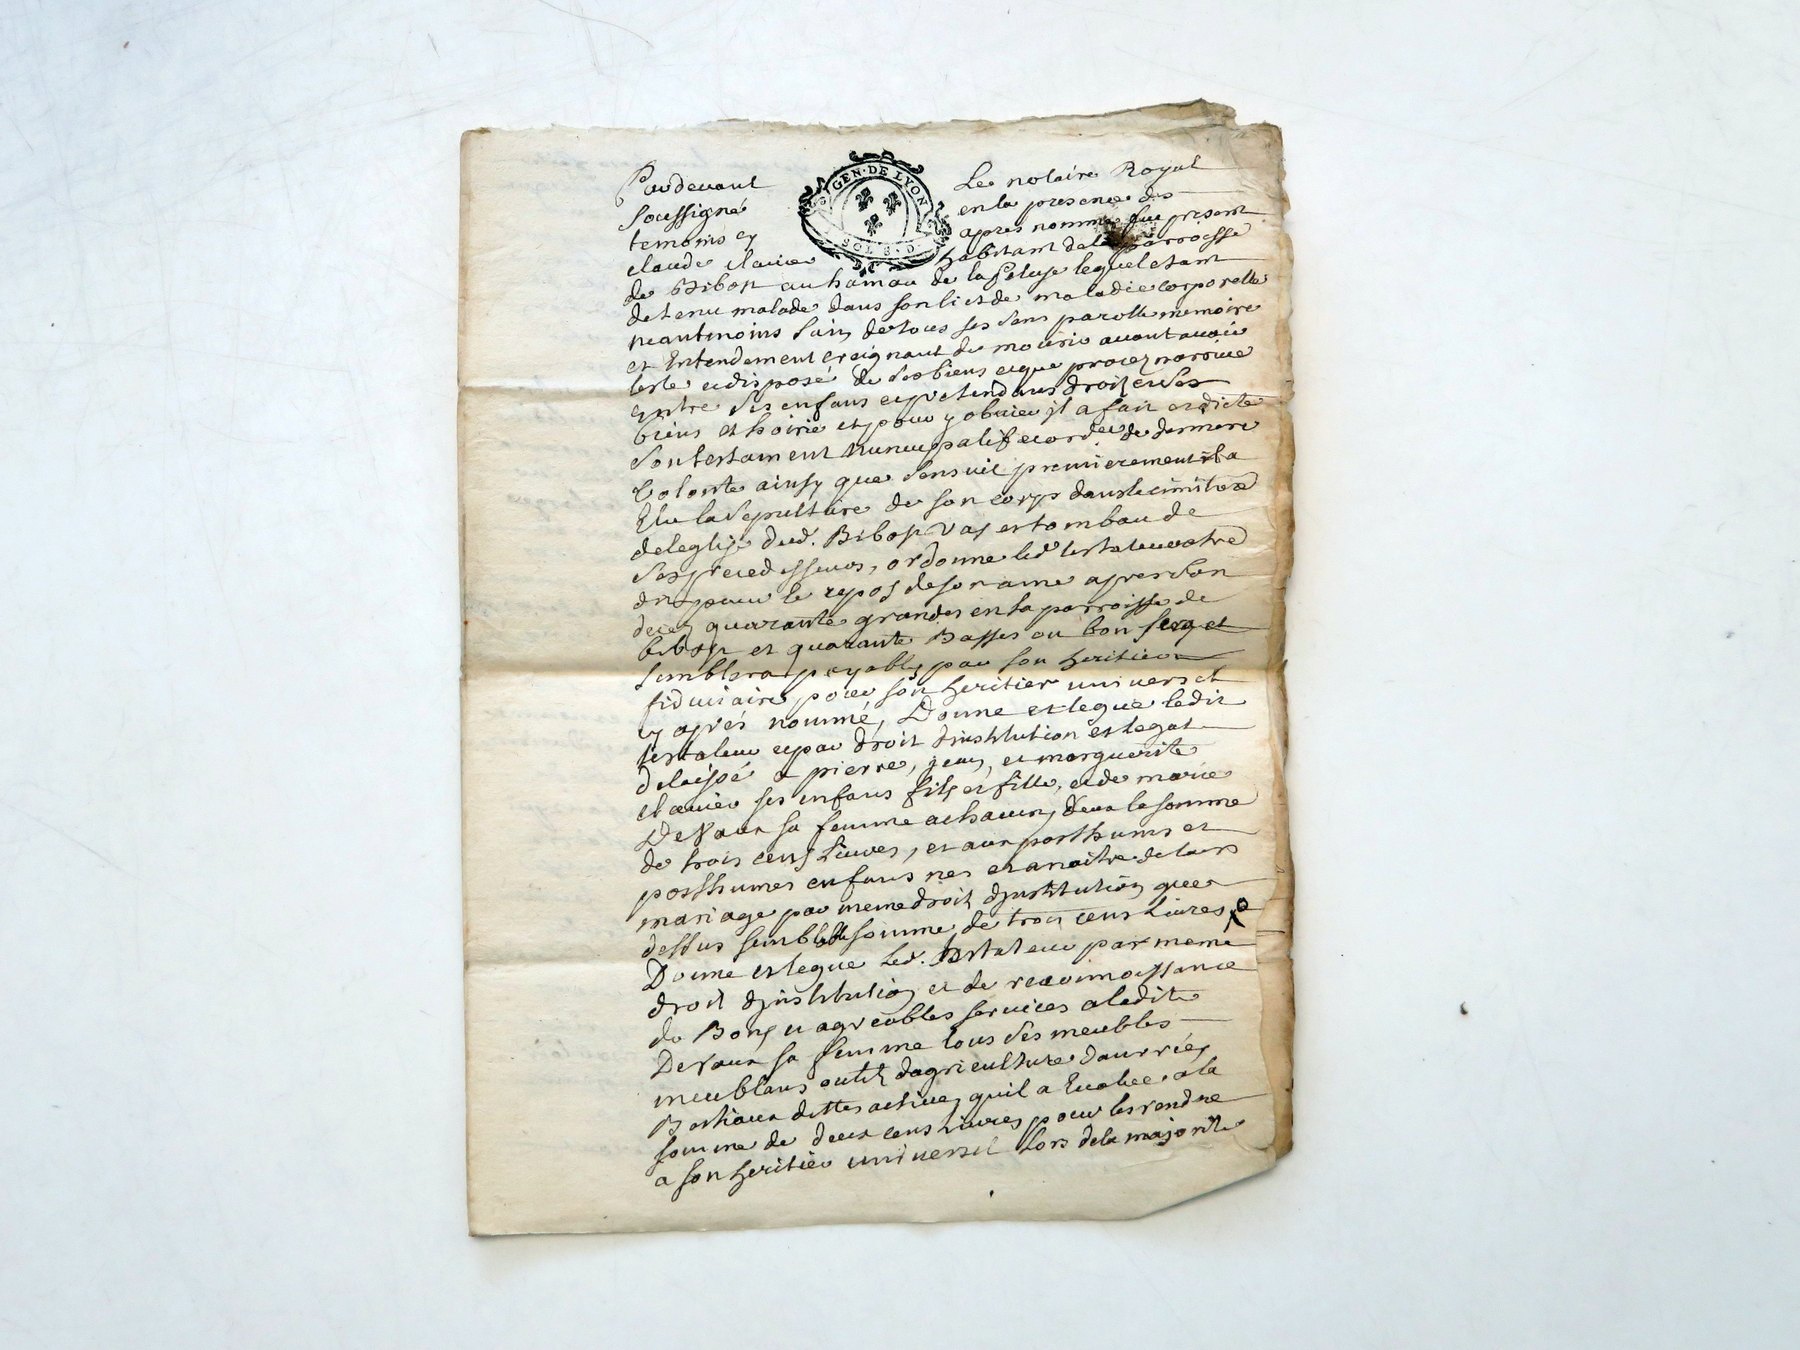 GEN·DE LYON
SOLS·D
Pardevant Le notaire Royal
soussigné en la presence des
temoins cy apres nommés fut present
claude clavier habitant de la parroisse
de Bibost au hamau de la lequel etant
detenu malade dans son lit de maladie corporelle
neantmoins sain de tous ses sens parolle memoire
et Entendement creignant de mourir avant avoir
teste et disposé de ses biens et que procez n'arrive
entre ses enfans et pretendans droit en ses
biens et hoirie et pour y obvier il a fait et dicté
son testament nuncupatif et ordce de derniere
volonté ainsy que sensuit premierement a
Elu la sepulture de son corps dans le cimitiere
de leglise dud. Bibost vas et tombau de
ses predecesseurs, ordonne led. testateur estre
dit pour le repos de son ame apres son
decez quarante grandes en la parroisse de
bibost et quarante Basses ou bon sera et
semblera payables par son heritiere
fiduciaire, pour son heritier universel
cy aprés nommé, Donne et legue ledit
testateur et par droit dinstitution et legat
delaissé a pierre, jean, et marguerite
clavier ses enfans fils et fille, et de marie
Devaux sa femme a chacun deux la somme
de trois cens livres, et aux posthums et
posthumes enfans nes et a naitre de leur
mariage par meme droit dinstitution que
dessus semblable somme de trois cens livres,
Donne et legue led. testateur par meme
droit dinstitution et de reconnoissance
de Bons et agreables services a ladite
Devaux sa femme tous ses meubles
meublans outils dagriculture danrrées
Bestiaux dettes actives quil a Evaluée a la
somme de deux cens livres pour les rendre
a son heritier universel lors de la majorité